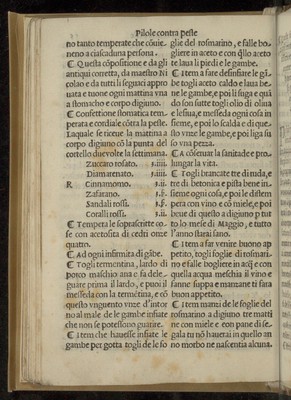 Pilole contra peste
no tanto temperate che cõuie
neno a ciascaduna persona.
¶ Questa cõpositione e da gli
antiqui corretta, da maestro Ni
colao e da tutti li seguaci appro
uata e tuone ogni mattina vna
a stomacho e corpo digiuno.
¶ Confettione stomatica tem
perata e cordiale cõtra la peste.
Laquale se riceue la mattina a
corpo digiuno cõ la punta del
cortello due volte la settimana.
Zuccaro rosato.
Diamatenato.
R Cinnamomo.
Zafarano.
Sandali rossi.
Coralli rossi.
¶ Tempera le soprascritte co
se con acetosita di cedri onze
quatro.
¶ Ad ogni infirmita di gãbe.
¶ Togli termentina, lardo di
porco maschio ana e fa dele
guare prima il lardo, e puoi il
messeda con la termẽtina, e cõ
questo vnguento vnze d'intor
no al male de le gambe infiate
che non se potessono guarire.
¶ Item che hauesse infiate le
gambe per gotta togli de le fo
glie del rosmarino, e falle bo
gliere in aceto e con q̃llo aceto
te laua li piedi e le gambe.
¶ Item a fare desinfiare le gã
be togli aceto caldo e laua be
ne le gambe, e poi li fuga e quã
do son sutte togli olio di oliua
e lesiua, e messeda ogni cosa in
sieme, e poi lo scalda e di que
sto vnze le gambe, e poi liga su
so vna pezza.
¶ A cõseruar la sanitade e pro
lungar la vita.
¶ Togli brancate tre di ruda, e
tre di betonica e pista bene in
sieme ogni cosa, e poi le distem
pera con vino e cõ miele, e poi
beue di questo a digiuno p tut
to lo mese di Maggio, e tutto
l'anno starai sano.
¶ Item a far venire buono ap
petito, togli foglie di rosmari
no e falle bogliere in acq̃ e con
quella acqua meschia il vino e
fanne suppa e manzane ti fara
buon appetito.
¶ Item manzi de le foglie del
rosmarino a digiuno tre matti
ne con miele e con pane di se
gala tu nõ hauerai in quello an
no morbo ne nascentia alcuna.